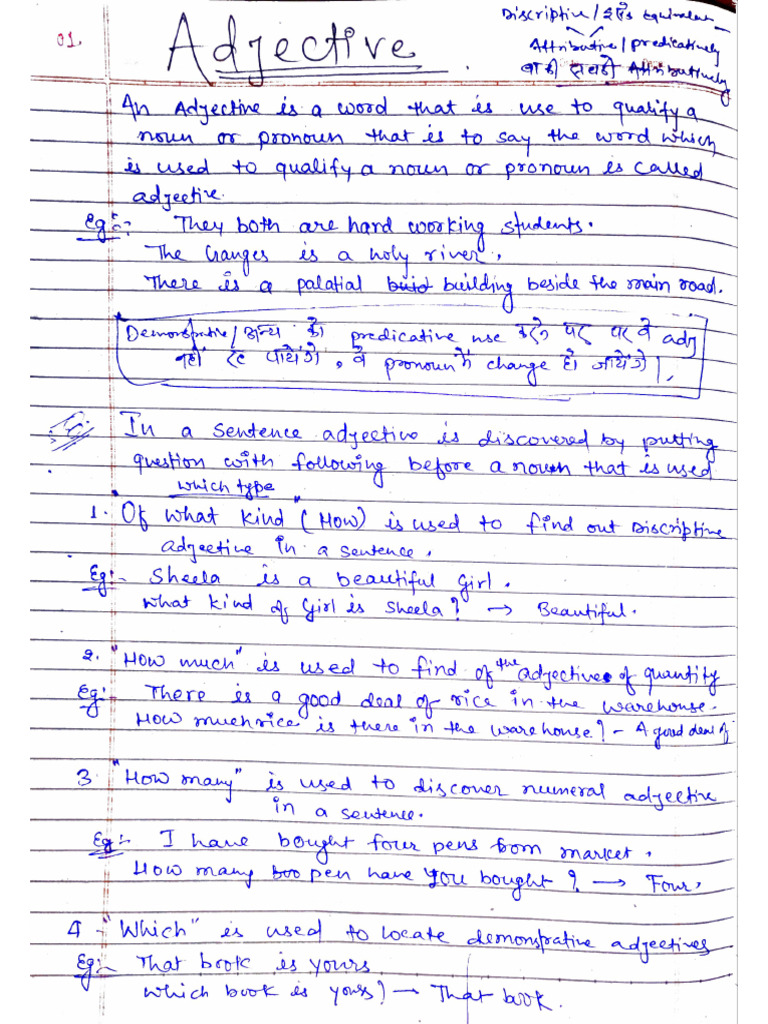 01.
Adjective
Discriptive / इसके Equivalent
Attributive / predicatively
बाकी सबको Attributively
An Adjective is a word that is use to qualify a
noun or pronoun that is to say the word which
is used to qualify a noun or pronoun is called
adjective.
Eg:- They both are hard working students.
The Ganges is a holy river.
There is a palatial building beside the main road.
Demonstrative / अन्य को predicative use करने पर पर वे adj
नहीं रह पायेंगे, वे pronoun में change हो जायेंगे।
In a sentence adjective is discovered by putting
question with following before a noun that is used
which type
1. "Of what kind (How)" is used to find out Discriptive
adjective in a sentence.
Eg:- Sheela is a beautiful Girl.
What kind of Girl is Sheela? → Beautiful.
2. "How much" is used to find of the adjective of quantity
Eg:- There is a good deal of rice in the warehouse.
How much rice is there in the warehouse? - A good deal of
3. "How many" is used to discover numeral adjective
in a sentence.
Eg:- I have bought four pens from market.
How many pen have you bought? → Four.
4 - "Which" is used to locate demonstrative adjectives
Eg:- That book is yours
Which book is yours? → That book.